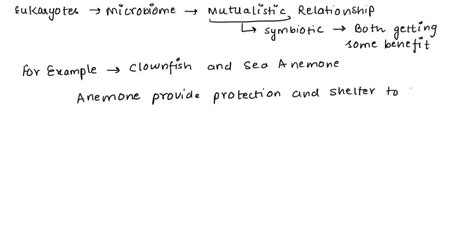 Eukaryotes → Microbiome → Mutualistic Relationship
↳ symbiotic → Both getting
some benefit
For Example → Clownfish and Sea Anemone
Anemone provide protection and shelter to